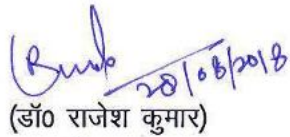 20/08/2018
(डॉ0 राजेश कुमार)